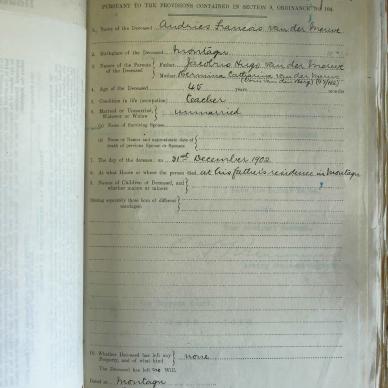 PURSUANT TO THE PROVISIONS CONTAINED IN SECTION 9, ORDINANCE No 104.
1. Name of the Deceased Andries Francois van der Merwe
2. Birthplace of the Deceased Montagu
3. Names of the Parents of the Deceased { Father Jacobus Hugo van der Merwe
Mother Hermina Catharina van der Merwe
4. Age of the Deceased 45 years months
5. Condition in life (occupation) teacher
6. Married or Unmarried, Widower or Widow } unmarried
(a) Name of Surviving Spouse
(b) Name or Names and approximate date of death of previous Spouse or Spouses
7. The day of the decease, on 31st December 1902
8. At what House or where the person died at his father's residence in Montagu
9. Names of Children of Deceased, and whether majors or minors
Stating separately those born of different marriages
10. Whether Deceased has left any Property, and of what kind } none
The Deceased has left no Will.
Dated at Montagu